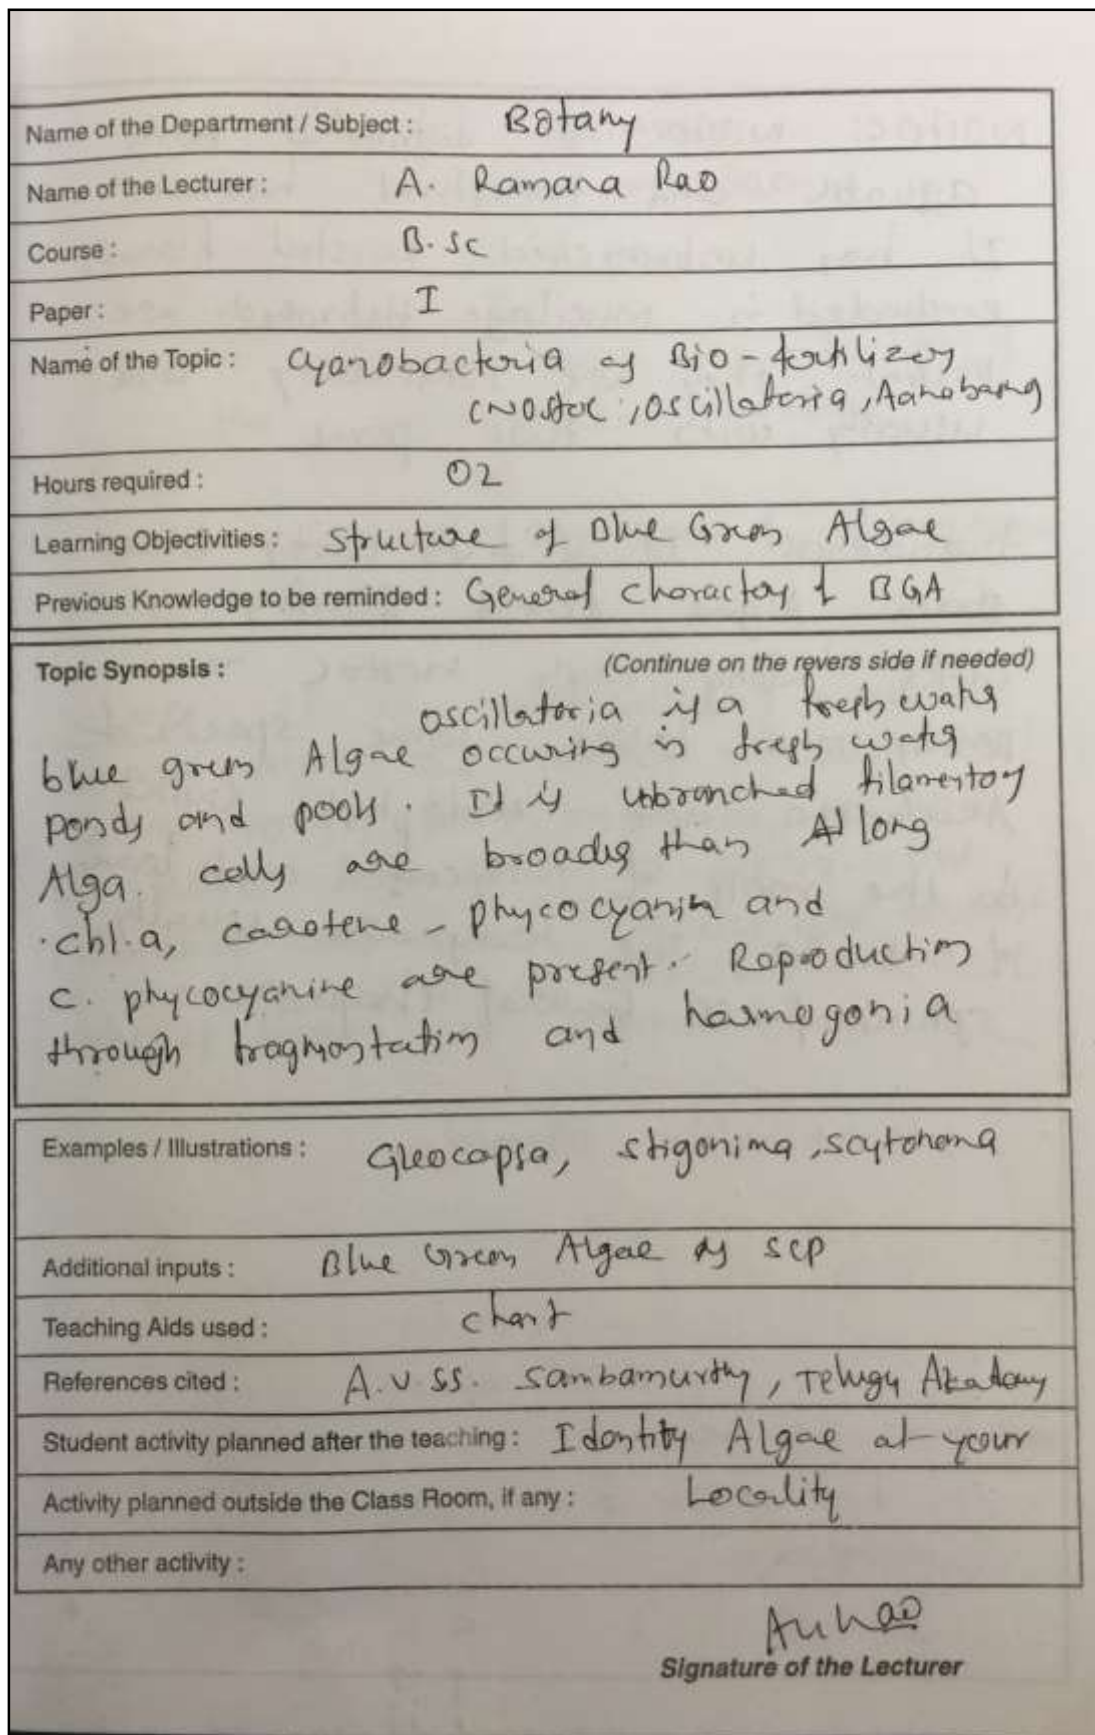 Name of the Department / Subject : Botany
Name of the Lecturer : A. Ramana Rao
Course : B.Sc
Paper : I
Name of the Topic : Cyanobacteria as Bio-fertilizers
(Nostoc, Oscillatoria, Aanabaena
Hours required : 02
Learning Objectivities : Structure of Blue Green Algae
Previous Knowledge to be reminded : General charactors of BGA
Topic Synopsis : (Continue on the revers side if needed)
oscillatoria is a fresh water
blue green Algae occuring in fresh water
ponds and pools. It is unbranched filamentos
Alga. cells are broader than long
chl.a, carotene - phycocyanin and
c. phycocyanine are present. Reproduction
through fragmentation and harmogonia
Examples / Illustrations : Gleocapsa, stigonima, scytonema
Additional inputs : Blue Green Algae as SCP
Teaching Aids used : chart
References cited : A.V.SS. Sambamurthy, Telugu Akadamy
Student activity planned after the teaching : Identity Algae at your
Activity planned outside the Class Room, if any : Locality
Any other activity :
Signature of the Lecturer